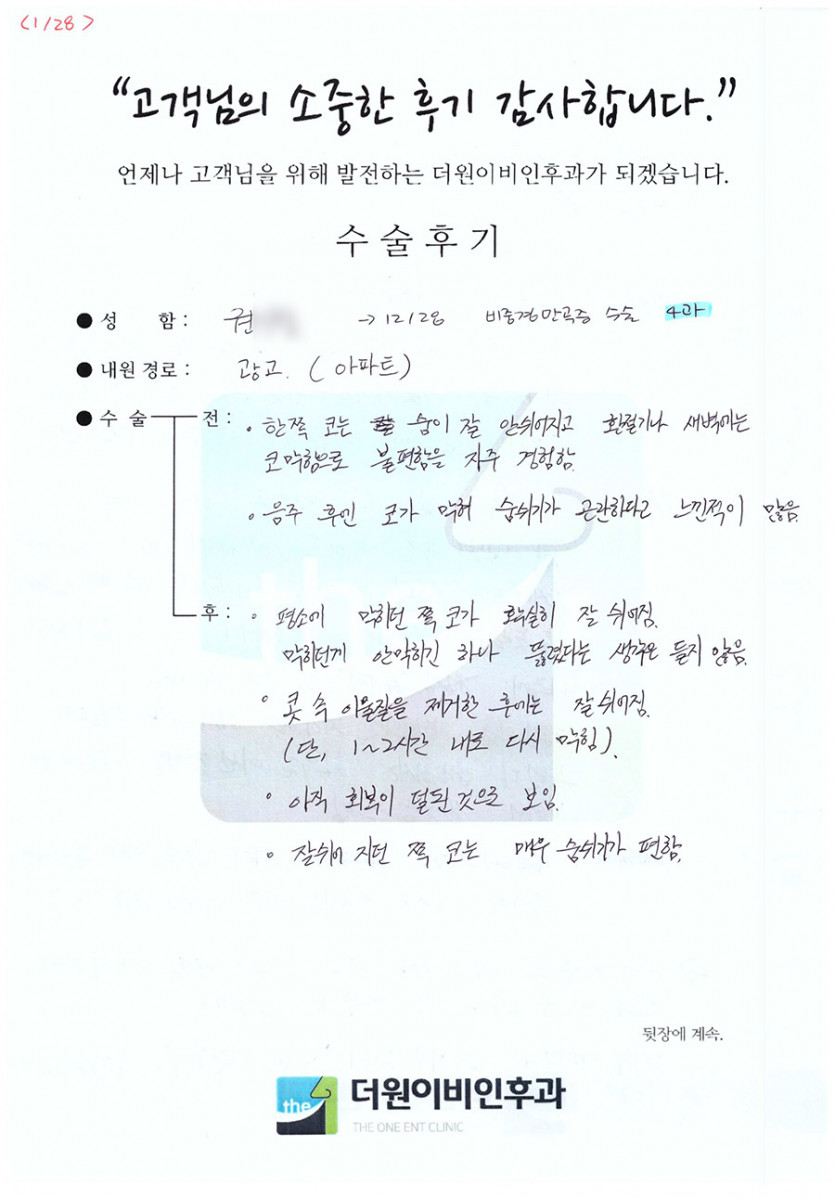 (1/28)
“고객님의 소중한 후기 감사합니다.”
언제나 고객님을 위해 발전하는 더원이비인후과가 되겠습니다.
수술후기
● 성 함 : 권 → 12/28 비중격만곡증 수술 4과
● 내원 경로 : 광고. (아파트)
● 수 술 전 : • 한쪽 코는 숨이 잘 안쉬어지고 환절기나 새벽에는
코막힘으로 불편함을 자주 경험함.
• 음주 후엔 코가 막혀 숨쉬기가 곤란하다고 느낀적이 많음.
후 : • 평소에 막히던 쪽 코가 확실히 잘 쉬어짐.
막히던게 안막히긴 하나 뚫렸다는 생각은 들지 않음.
• 콧 속 이물질을 제거한 후에는 잘 쉬어짐.
(단, 1~2시간 내로 다시 막힘).
• 아직 회복이 덜된 것으로 보임.
• 잘쉬어 지던 쪽 코는 매우 숨쉬기가 편함.
뒷장에 계속.
the 더원이비인후과
THE ONE ENT CLINIC